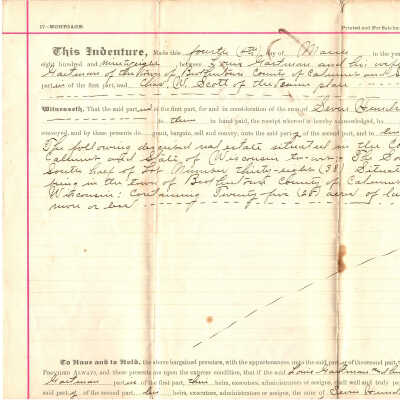 17—MORTGAGE. Printed and For Sale by
This Indenture, Made this fourth (4th) day of March in the year
eight hundred and ninety eight, between Louis Hartman and his wife
Hartman of the town of Brothertown County of Calumet and S
part ies of the first part, and Chas. W. Scott of the same place
Witnesseth, That the said part ies of the first part, for and in consideration of the sum of Seven Hundre
to them in hand paid, the receipt whereof is hereby acknowledged, ha
conveyed, and by these presents do grant, bargain, sell and convey, unto the said part y of the second part, and to
The following described real estate situated in the Co
Calumet and State of Wisconsin to-wit: The So
South half of Lot Number thirty-eight (38) Situat
being in the town of Brothertown County of Calumet
Wisconsin: Containing Twenty-five (25) acres of la
more or less
To Have and to Hold, the above bargained premises, with the appurtenances unto the said part y of the second part
PROVIDED ALWAYS, and these presents are upon the express condition, that if the said Louis Hartman and
Hartman part ies of the first part, their heirs, executors, administrators or assigns, shall well and truly pa
said part y of the second part, his heirs, executors, administrators or assigns, the sum of Seven Hund